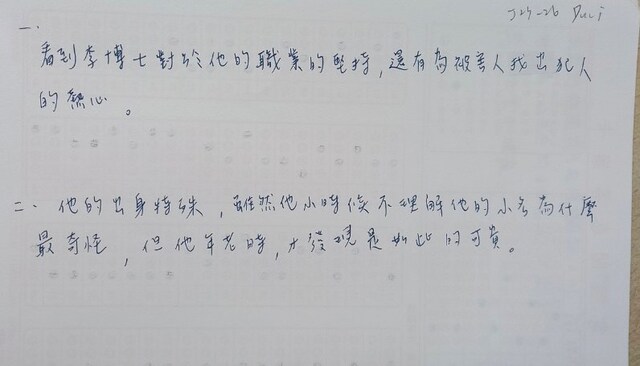 一、
看到李博士對於他的職業的堅持,還有為被害人找出犯人
的熱心。
二、他的出身特殊,雖然他小時候不理解他的小名為什麼
最奇怪,但他年老時,才發現是如此的可貴。